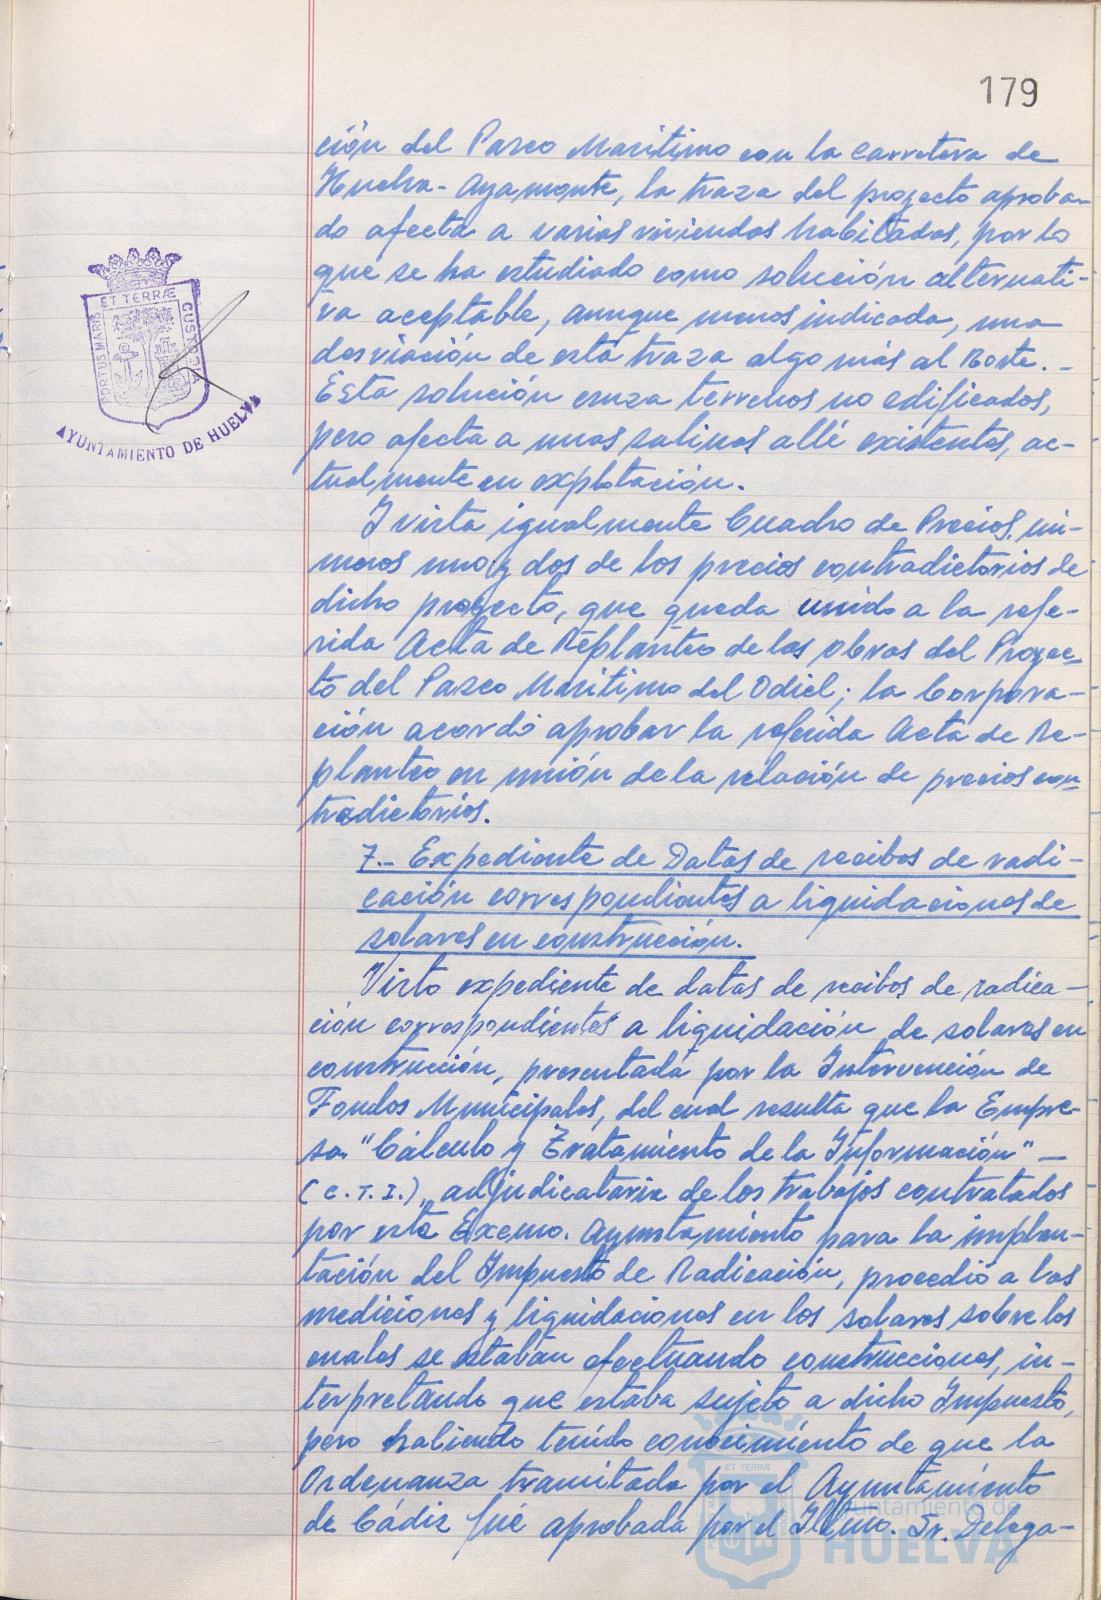 179
ción del Paseo Maritimo con la carretera de
Huelva-Ayamonte, la traza del proyecto aproba-
do afecta a varias viviendas habitadas, por lo
que se ha estudiado como solución alternati-
va aceptable, aunque menos indicada, una
desviación de esta traza algo más al Norte.-
Esta solución cruza terrenos no edificados,
pero afecta a unas salinas allí existentes, ac-
tualmente en explotación.
Y vista igualmente Cuadro de Precios nú-
meros uno y dos de los precios contradictorios de
dicho proyecto, que queda unido a la refe-
rida Acta de Replanteo de las obras del Proyec-
to del Paseo Maritimo del Odiel; la Corpora-
ción acordó aprobar la referida Acta de Re-
planteo en unión de la relación de precios con-
tradictorios.
7.- Expediente de Datas de recibos de radi-
cación correspondientes a liquidaciones de
solares en construcción.
Visto expediente de datas de recibos de radica-
ción correspondientes a liquidación de solares en
construcción, presentada por la Intervención de
Fondos Municipales, del cual resulta que la Empre-
sa "Cálculo y Tratamiento de la Información" -
(C.T.I.), adjudicataria de los trabajos contratados
por este Excmo. Ayuntamiento para la implan-
tación del Impuesto de Radicación, procedió a las
mediciones y liquidaciones en los solares sobre los
cuales se estaban efectuando construcciones, in-
terpretando que estaba sujeto a dicho Impuesto,
pero habiendo tenido conocimiento de que la
Ordenanza tramitada por el Ayuntamiento
de Cádiz fué aprobada por el Iltmo. Sr. Delega-
PORTUS MARIS ET TERRÆ CUSTODIA
AYUNTAMIENTO DE HUELVA
ET TERRÆ
Ayuntamiento de
HUELVA